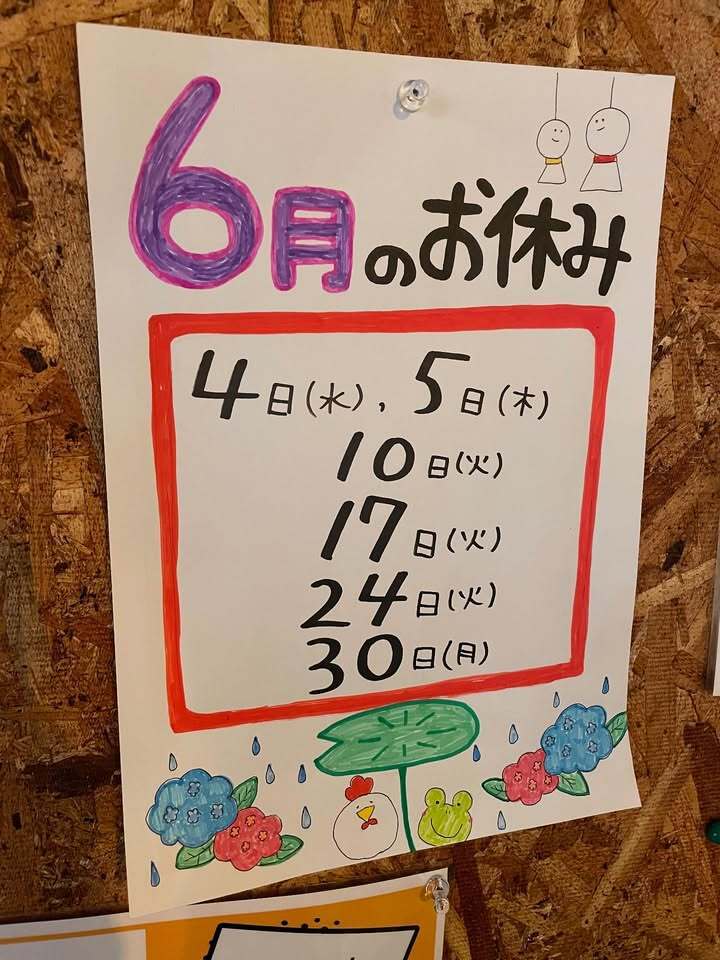 6月のお休み
4日(水), 5日(木)
10日(火)
17日(火)
24日(火)
30日(月)